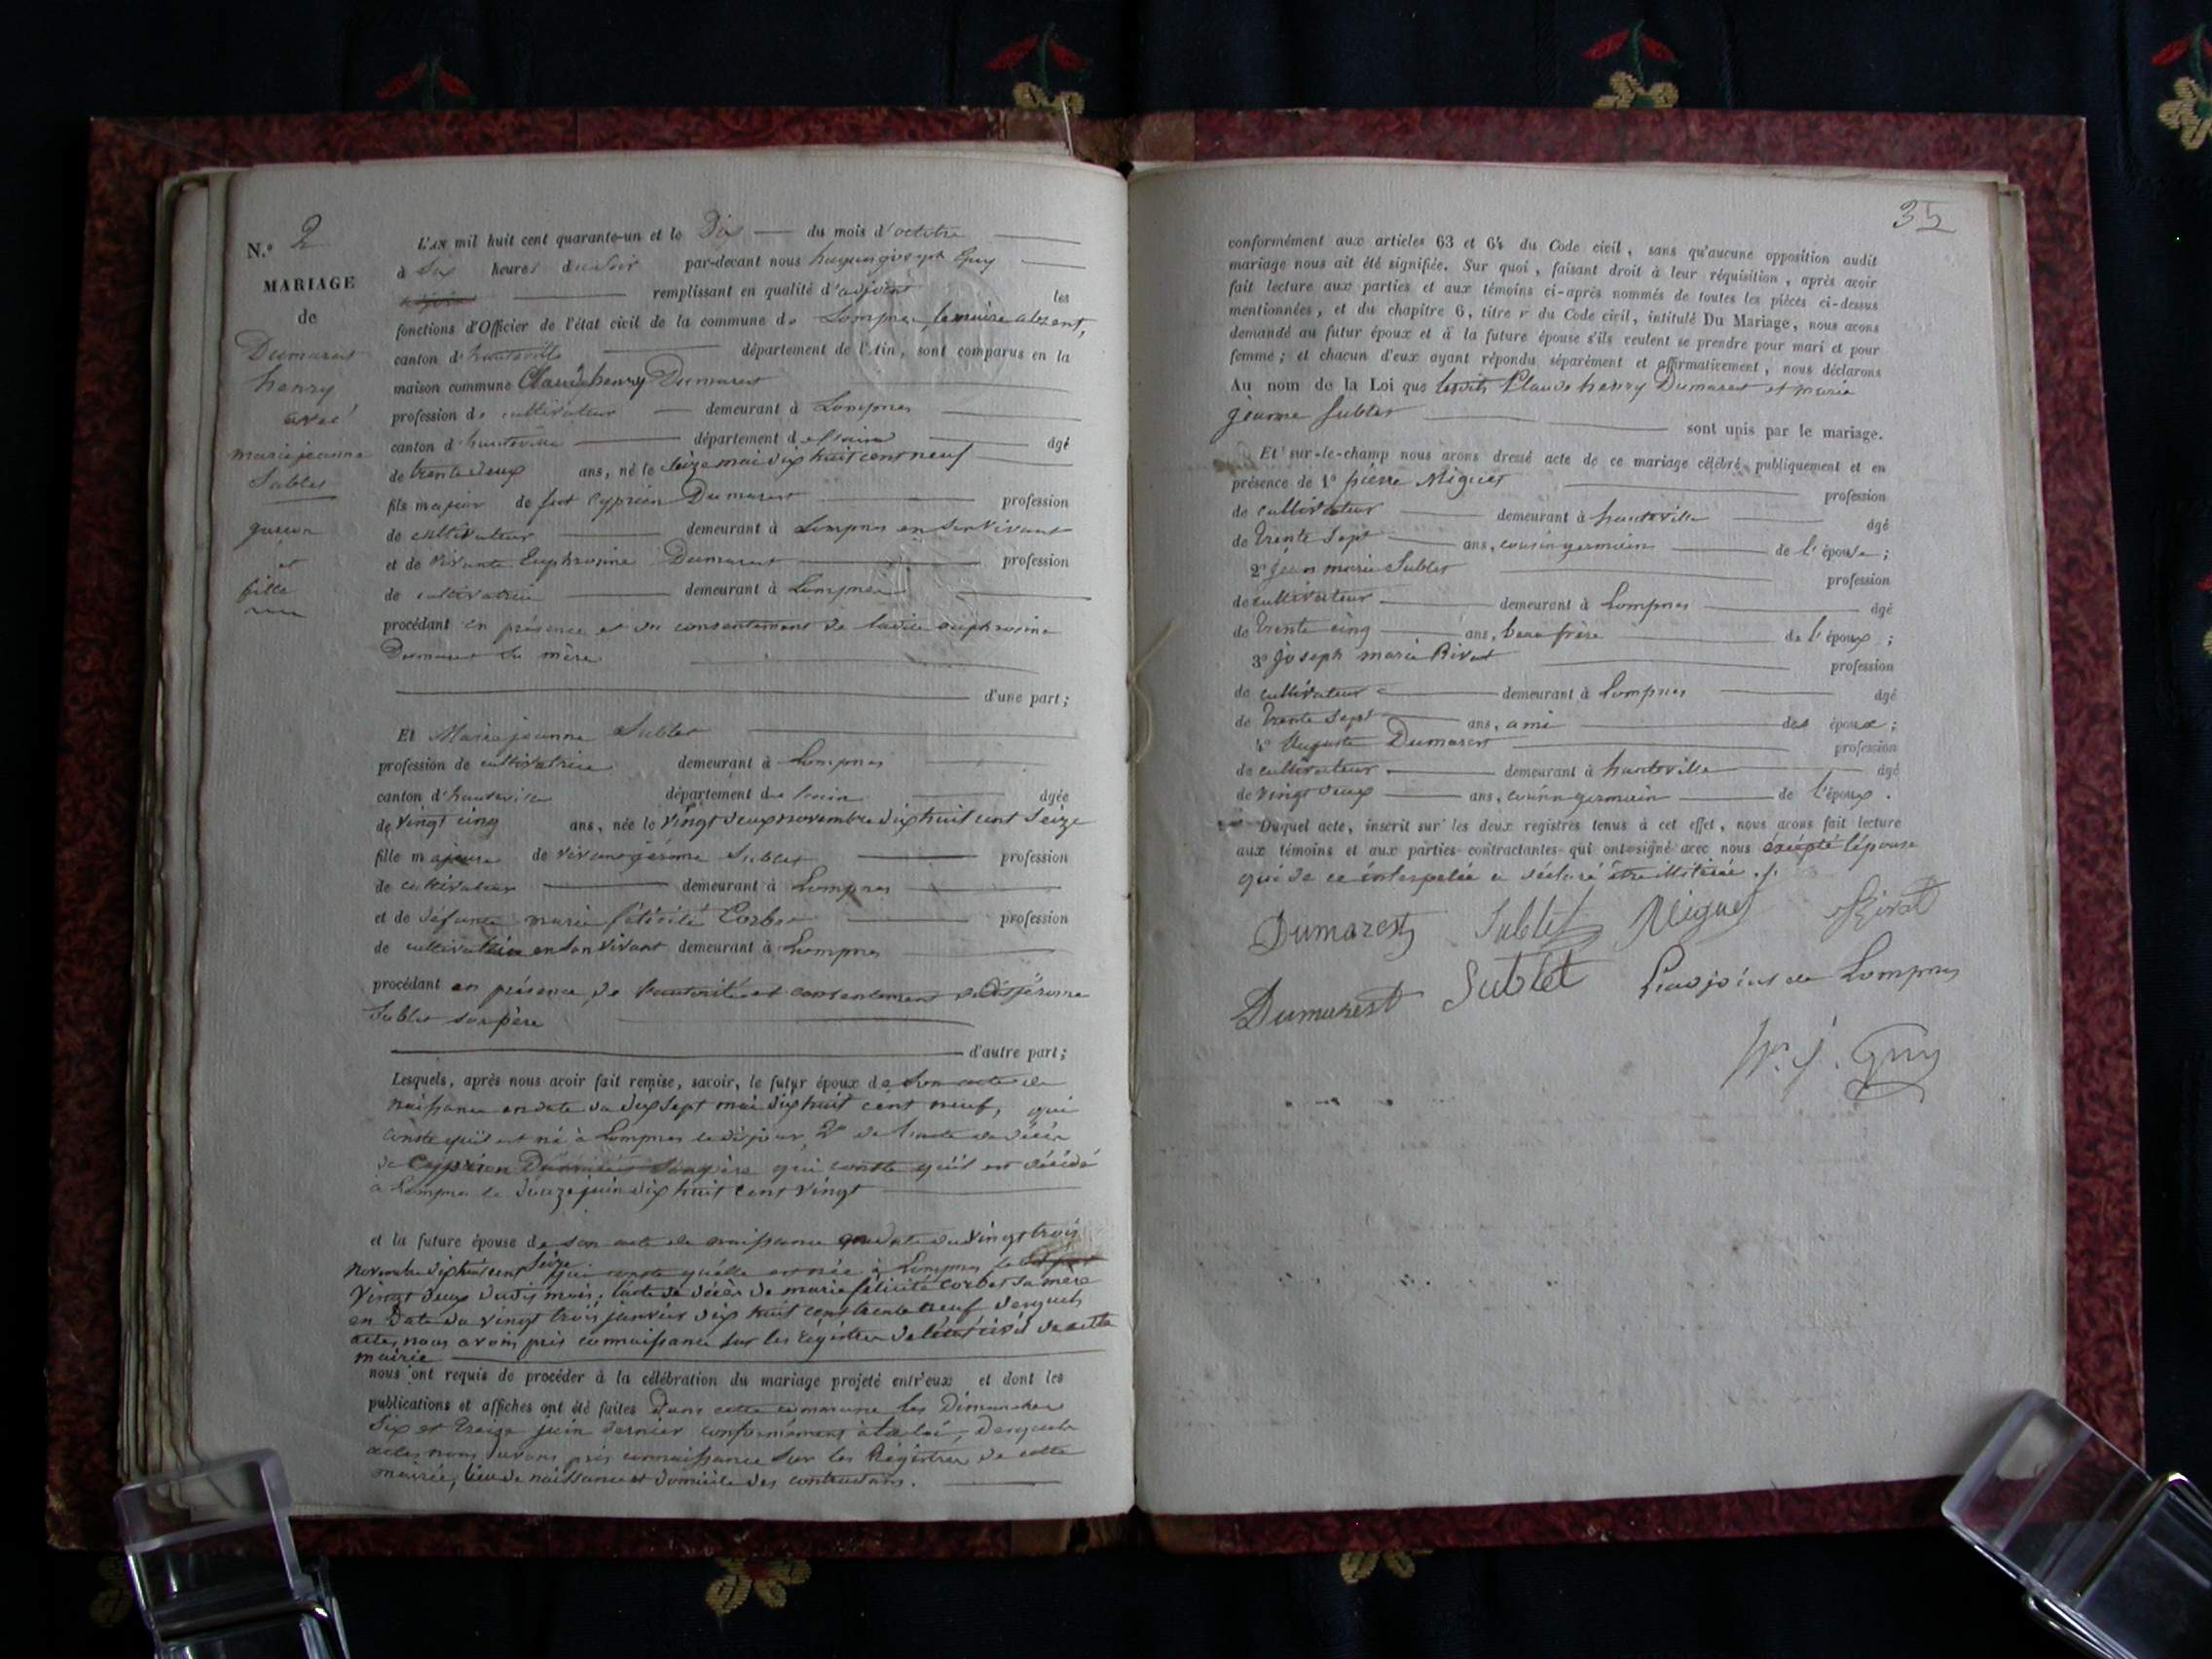 N.º 2
MARIAGE
de
Dumarest
henry
avec
marie jeanne
Sublet
garçon
et
fille
L'AN mil huit cent quarante-un et le Dix du mois d'octobre
à Six heures du soir par-devant nous hugues joseph Guy
adjoint remplissant en qualité d'adjoint les
fonctions d'Officier de l'état civil de la commune de Lompnes, le maire absent,
canton d'hauteville département de l'Ain, sont comparus en la
maison commune Claude henry Dumarest
profession de cultivateur demeurant à Lompnes
canton d'hauteville département de l'ain âgé
de trente deux ans, né le seize mai dix huit cent neuf
fils majeur de feu Cyprien Dumarest profession
de cultivateur demeurant à Lompnes en son vivant
et de vivante Euphrosine Dumarest profession
de cultivatrice demeurant à Lompnes
procédant en présence et du consentement de ladite euphrosine
Dumarest sa mère
d'une part;
Et Marie jeanne Sublet
profession de cultivatrice demeurant à Lompnes
canton d'hauteville département de l'ain âgée
de vingt cinq ans, née le vingt deux novembre dix huit cent Seize
fille majeure de vivant jérome Sublet profession
de cultivateur demeurant à Lompnes
et de défunte marie félicité Corbet profession
de cultivatrice en son vivant demeurant à Lompnes
procédant en présence, de l'autorité et consentement dudit jérome
Sublet son père
d'autre part;
Lesquels, après nous avoir fait remise, savoir, le futur époux de son acte de
naissance en date du dix sept mai dix huit cent neuf, qui
conste qu'il est né à Lompnes le dit jour, 2º de l'acte de décès
de Cyprien Dumarest son père qui conste qu'il est décédé
à Lompnes le douze juin dix huit cent vingt
et la future épouse de son acte de naissance en date du vingt trois
novembre dix huit cent Seize qui conste qu'elle est née à Lompnes le
vingt deux dudit mois, l'acte de décès de marie félicité corbet sa mère
en date du vingt trois janvier dix huit cent trente neuf desquels
actes nous avons pris connaissance sur les régistres de l'état civil de cette
mairie
nous ont requis de procéder à la célébration du mariage projeté entr'eux et dont les
publications et affiches ont été faites dans cette commune les Dimanches
Six et treize juin dernier conformément à la loi, desquels
actes nous avons pris connaissance sur les Régistres de cette
mairie, lieu de naissance et domicile des contractans.
35
conformément aux articles 63 et 64 du Code civil, sans qu'aucune opposition audit
mariage nous ait été signifiée. Sur quoi, faisant droit à leur réquisition, après avoir
fait lecture aux parties et aux témoins ci-après nommés de toutes les pièces ci-dessus
mentionnées, et du chapitre 6, titre v du Code civil, intitulé Du Mariage, nous avons
demandé au futur époux et à la future épouse s'ils veulent se prendre pour mari et pour
femme; et chacun d'eux ayant répondu séparément et affirmativement, nous déclarons
Au nom de la Loi que lesdits Claude henry Dumarest et marie
jeanne Sublet sont unis par le mariage.
Et sur-le-champ nous avons dressé acte de ce mariage célébré publiquement et en
présence de 1º pierre Miguet profession
de cultivateur demeurant à hauteville âgé
de trente Sept ans, cousin germain de l'épouse;
2º jean marie Sublet profession
de cultivateur demeurant à Lompnes âgé
de trente cinq ans, beau frère de l'époux;
3º joseph marie Rivat profession
de cultivateur demeurant à Lompnes âgé
de trente sept ans, ami des époux;
4º Auguste Dumarest profession
de cultivateur demeurant à hauteville âgé
de vingt deux ans, cousin germain de l'époux.
Duquel acte, inscrit sur les deux registres tenus à cet effet, nous avons fait lecture
aux témoins et aux parties contractantes qui ont signé avec nous éxcépté l'épouse
qui de ce interpelée a déclaré être illitérée ./.
Dumarest Sublet Miguet Rivat
Dumarest Sublet L'adjoint de Lompnes
h. j. Guy